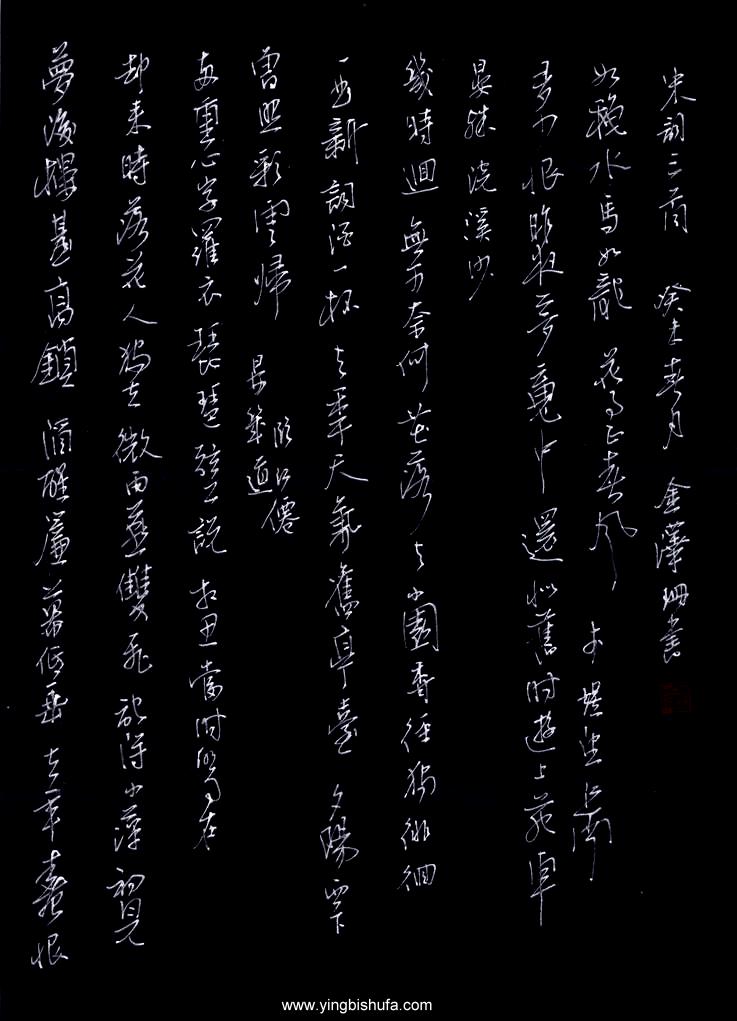 夢後樓臺高鎖 酒醒簾幕低垂 去年春恨
却来時 落花人獨立 微雨燕雙飛 記得小蘋初見
兩重心字羅衣 琵琶弦上説相思 當時明月在
曾照彩雲歸 晏幾道 臨江僊
一曲新詞酒一杯 去年天氣舊亭臺 夕陽西下
幾時迴 無可奈何花落去 小園香徑獨徘徊
晏殊 浣溪沙
多少恨 昨夜夢魂中 還似舊時遊上苑 車
如流水馬如龍 花月正春風 李煜 望江南
宋詞三首 癸未春月 金澤珊書
www.yingbishufa.com